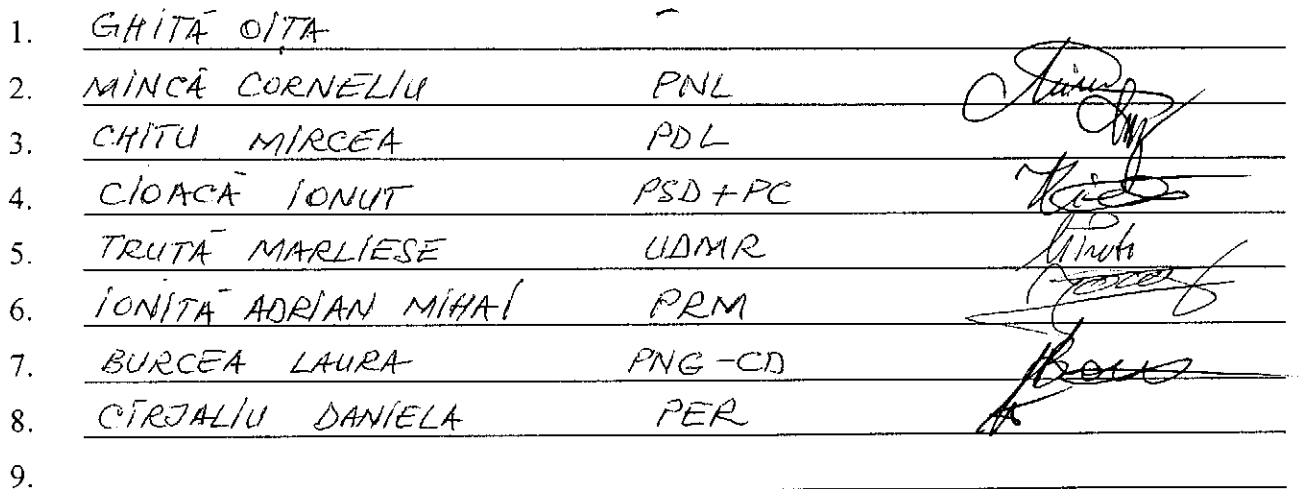 1. GHITĂ OIȚA -
2. MINCĂ CORNELIU PNL
3. CHITU MIRCEA PDL
4. CIOACĂ IONUT PSD+PC
5. TRUTĂ MARLIESE UDMR
6. IONITĂ ADRIAN MIHAI PRM
7. BURCEA LAURA PNG-CD
8. CÎRJALIU DANIELA PER
9.